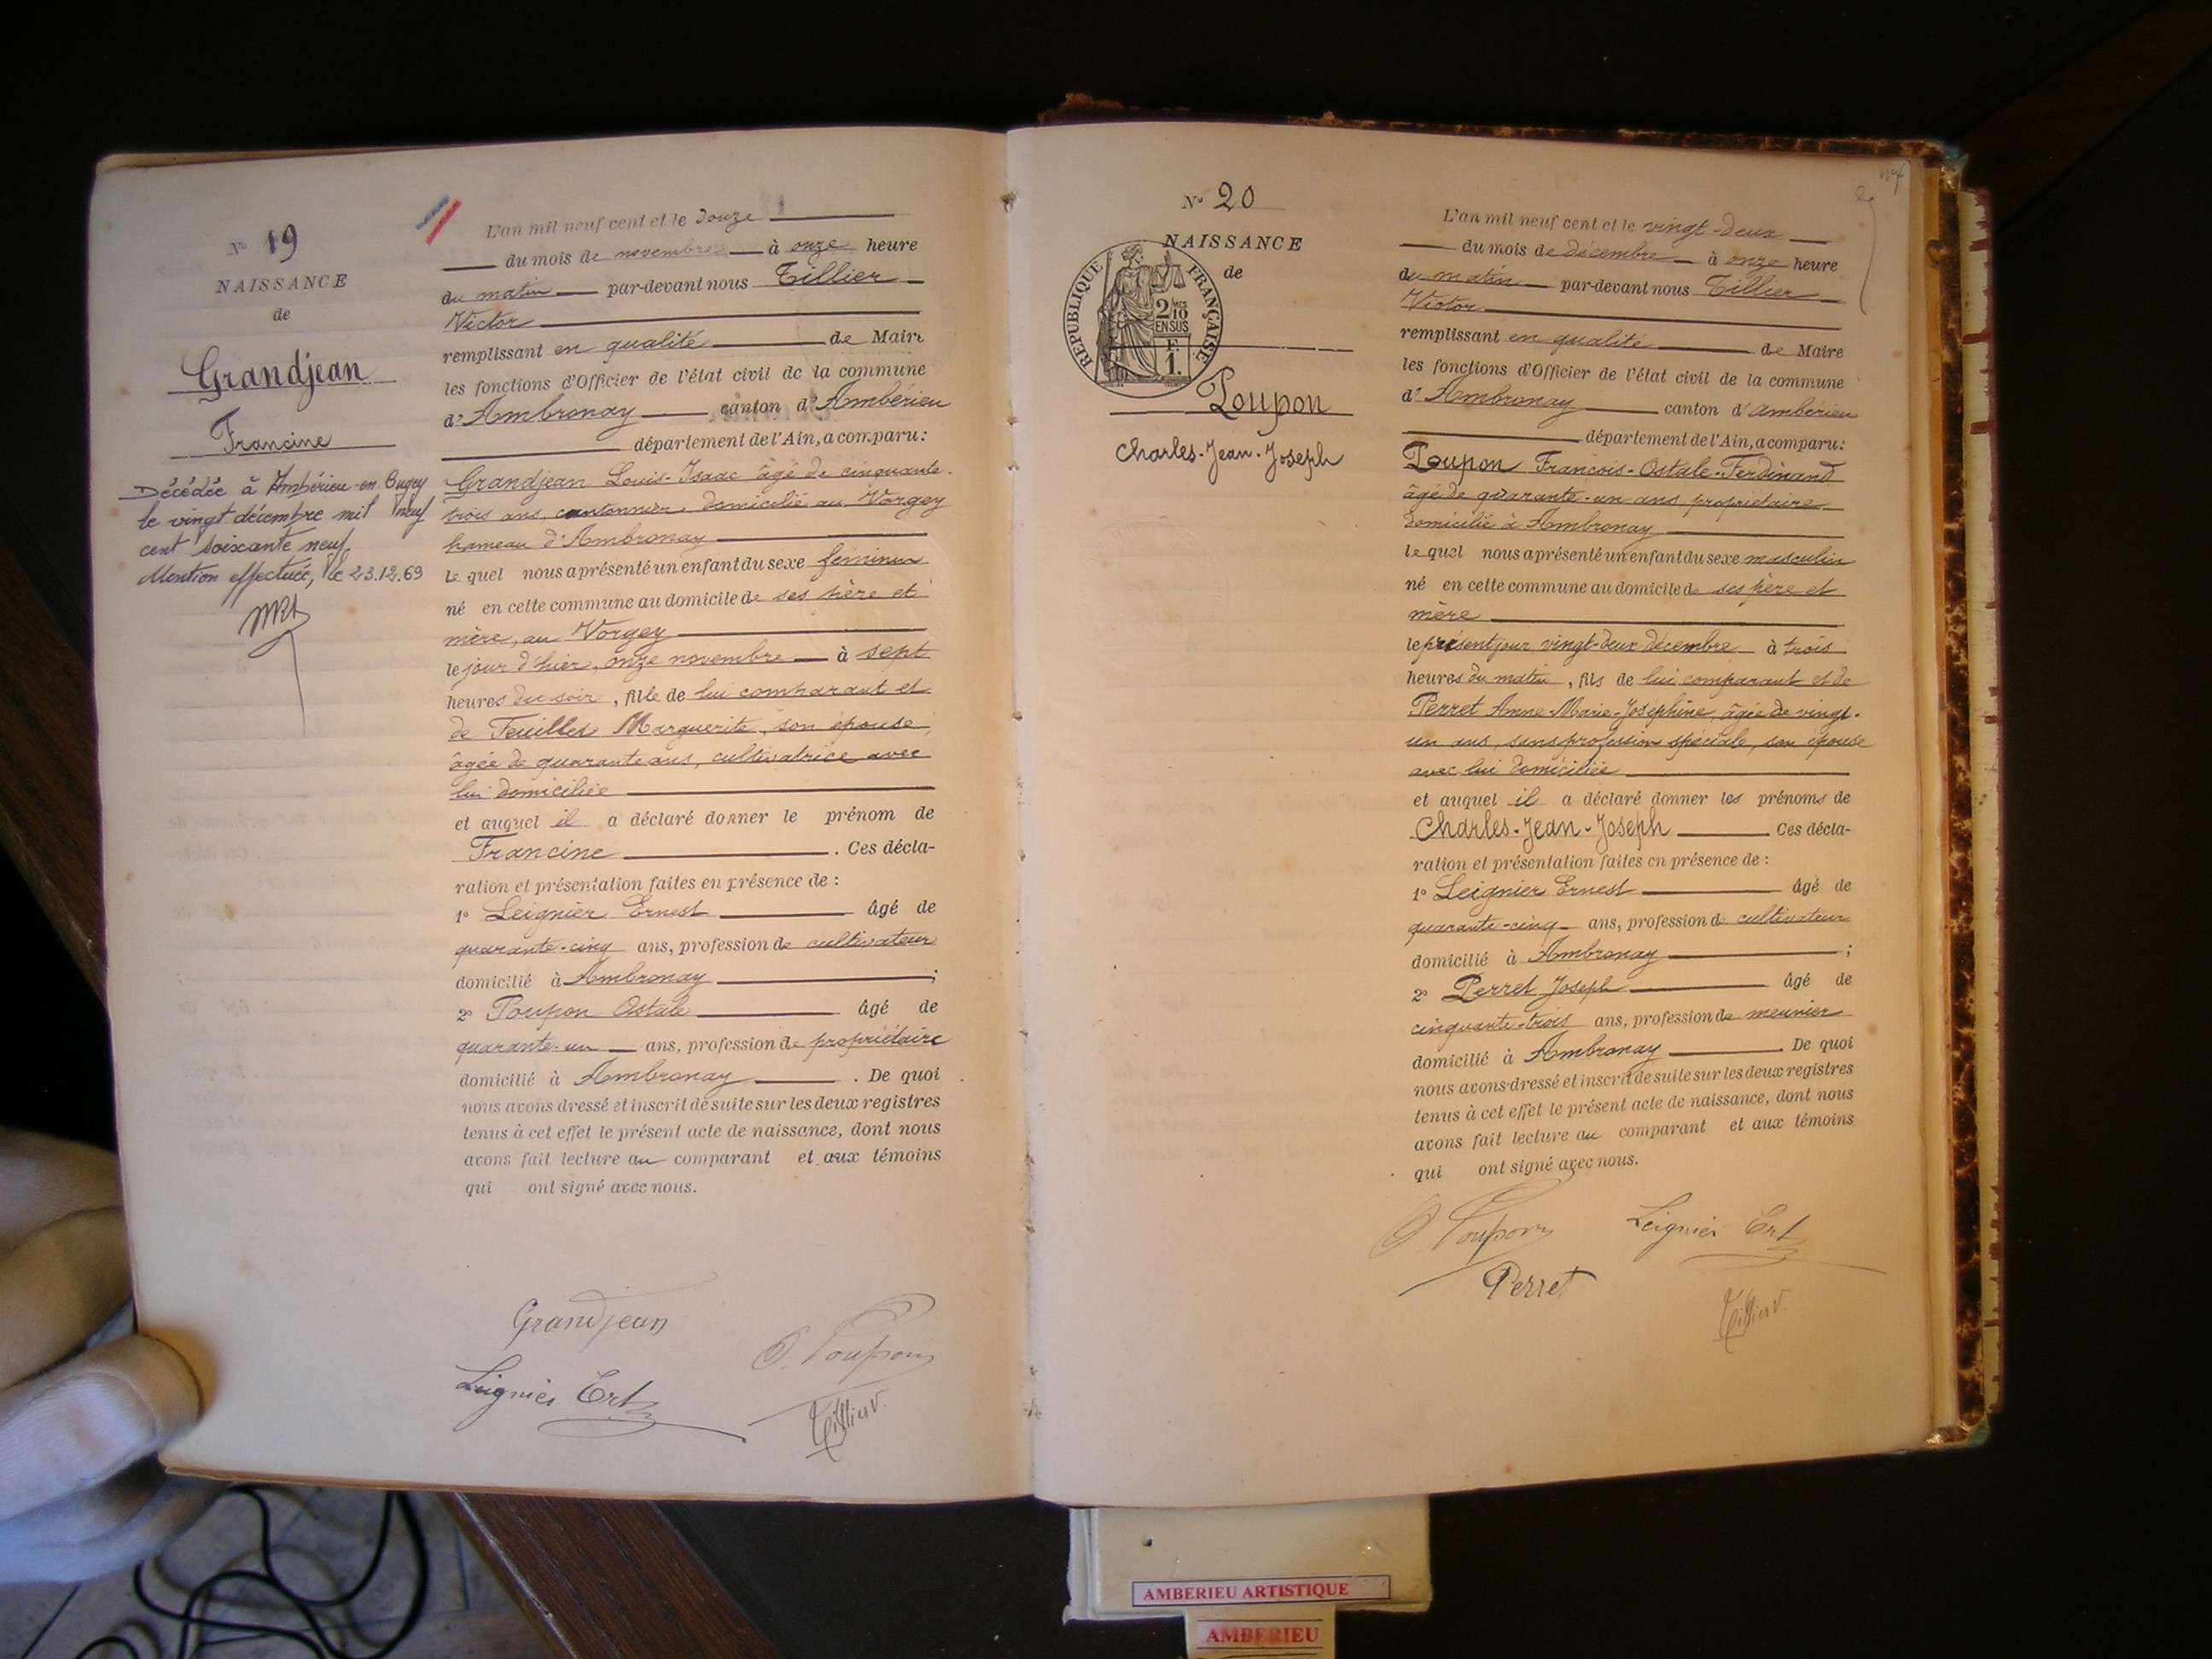 N° 19
NAISSANCE
de
Grandjean
Francine
Décédée à Ambérieu-en-Bugey
le vingt décembre mil neuf
cent soixante neuf.
Mention effectuée, le 23.12.69
L'an mil neuf cent et le douze
du mois de novembre à onze heure
du matin par-devant nous Tillier
Victor
remplissant en qualité de Maire
les fonctions d'Officier de l'état civil de la commune
d'Ambronay canton d'Ambérieu
département de l'Ain, a comparu :
Grandjean Louis-Isaac âgé de cinquante-
trois ans, cantonnier, domicilié au Vorgey
hameau d'Ambronay
le quel nous a présenté un enfant du sexe féminin
né en cette commune au domicile de ses père et
mère, au Vorgey
le jour d'hier, onze novembre à sept
heures du soir, fille de lui comparant et
de Feuillet Marguerite, son épouse,
âgée de quarante ans, cultivatrice avec
lui domiciliée
et auquel il a déclaré donner le prénom de
Francine . Ces décla-
ration et présentation faites en présence de :
1° Leignier Ernest âgé de
quarante-cinq ans, profession de cultivateur
domicilié à Ambronay ;
2° Poupon Ostale âgé de
quarante-un ans, profession de propriétaire
domicilié à Ambronay . De quoi
nous avons dressé et inscrit de suite sur les deux registres
tenus à cet effet le présent acte de naissance, dont nous
avons fait lecture au comparant et aux témoins
qui ont signé avec nous.
Grandjean
O. Poupon
Leignier Ert
Tillier V.
N° 20
NAISSANCE
de
RÉPUBLIQUE FRANÇAISE
2/10
EN SUS
F.
1.
Poupon
Charles-Jean-Joseph
L'an mil neuf cent et le vingt-deux
du mois de décembre à onze heure
du matin par-devant nous Tillier
Victor
remplissant en qualité de Maire
les fonctions d'Officier de l'état civil de la commune
d'Ambronay canton d'ambérieu
département de l'Ain, a comparu :
Poupon François-Ostale-Ferdinand
âgé de quarante-un ans propriétaire,
domicilié à Ambronay
le quel nous a présenté un enfant du sexe masculin
né en cette commune au domicile de ses père et
mère
le présent jour vingt-deux décembre à trois
heures du matin, fils de lui comparant et de
Perret Anne-Marie-Joséphine, âgée de vingt-
un ans, sans profession spéciale, son épouse
avec lui domiciliée
et auquel il a déclaré donner les prénoms de
Charles-Jean-Joseph Ces décla-
ration et présentation faites en présence de :
1° Leignier Ernest âgé de
quarante-cinq ans, profession de cultivateur
domicilié à Ambronay ;
2° Perret Joseph âgé de
cinquante-trois ans, profession de meunier
domicilié à Ambronay . De quoi
nous avons dressé et inscrit de suite sur les deux registres
tenus à cet effet le présent acte de naissance, dont nous
avons fait lecture au comparant et aux témoins
qui ont signé avec nous.
O. Poupon
Leignier Ert
Perret
Tillier V.
AMBERIEU ARTISTIQUE
AMBERIEU